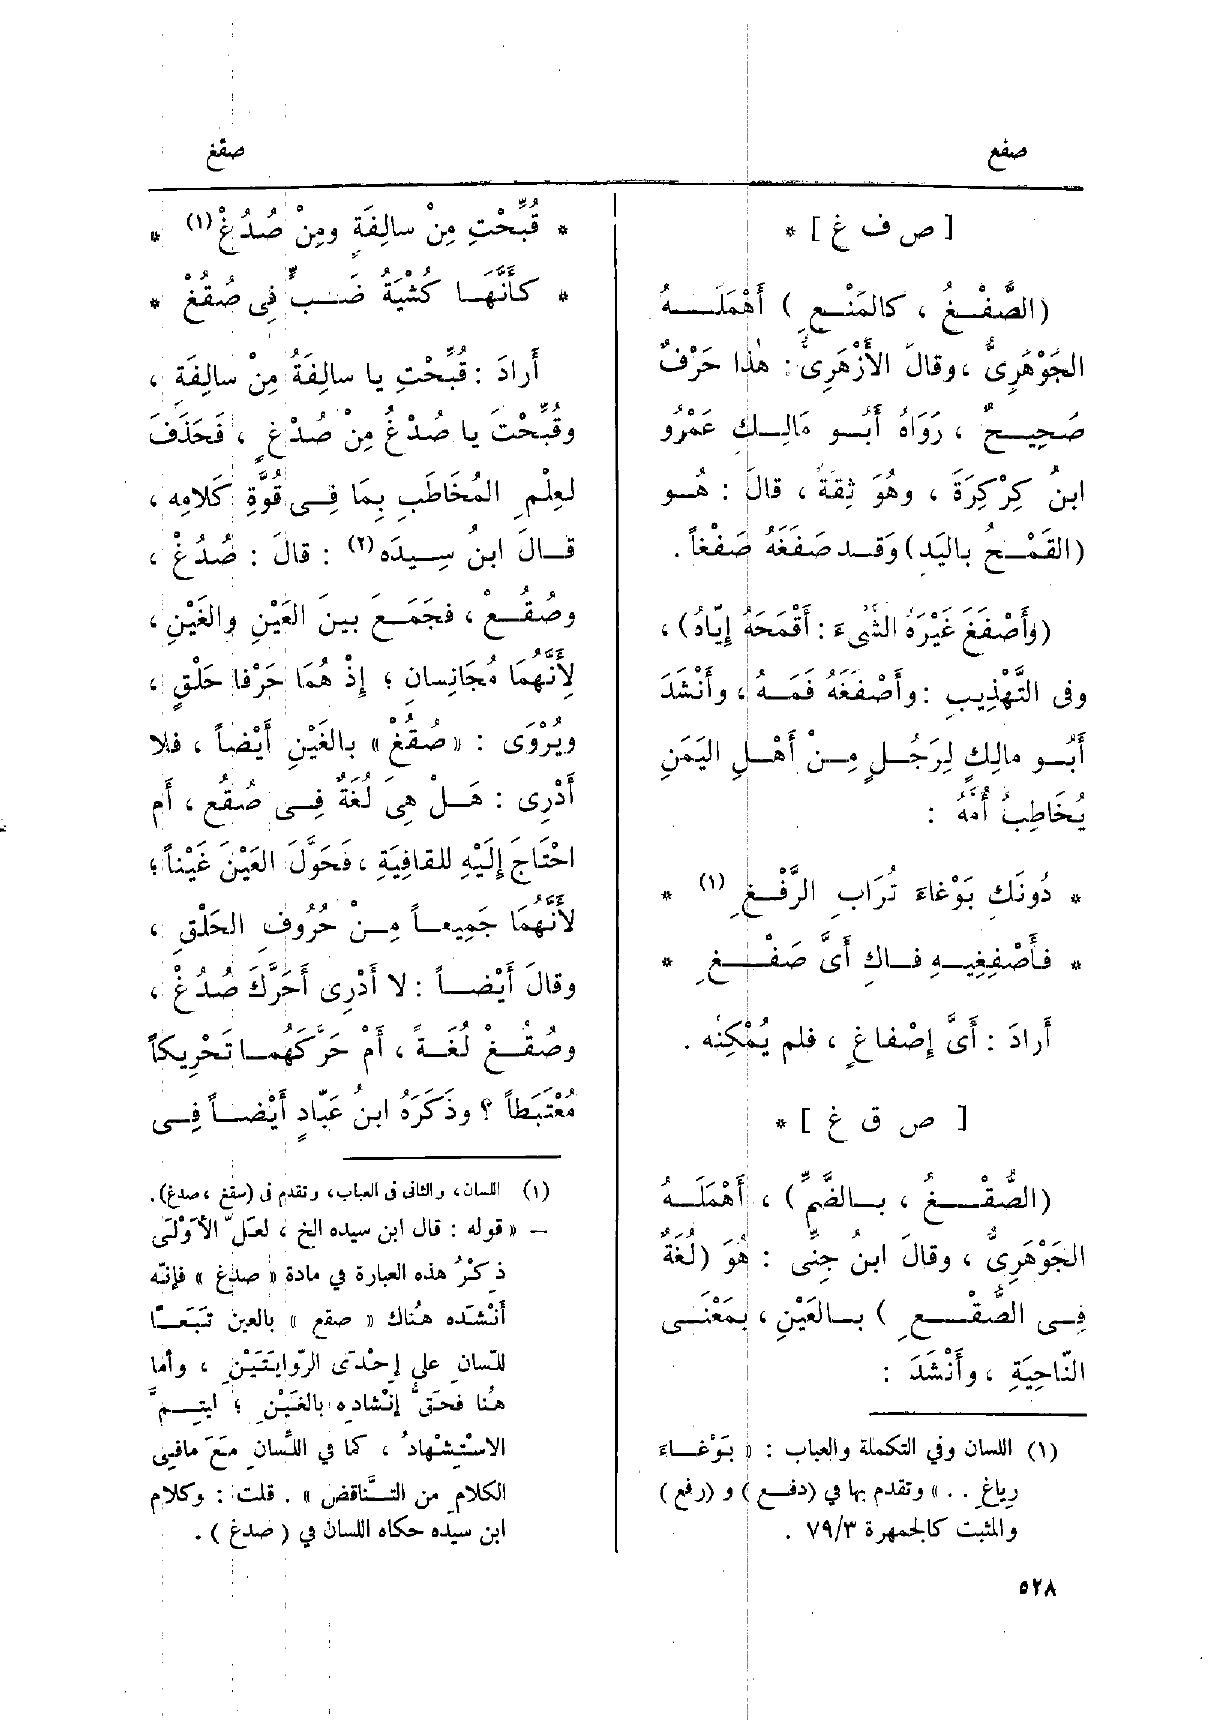 صفع
صقغ
[ ص ف غ ] *
(الصَّفْغُ ، كالمَنْعِ ) أَهْمَلَهُ
الجَوْهَرِىُّ ، وقالَ الأَزْهَرِىُّ : هٰذا حَرْفٌ
صَحِيحٌ ، رَوَاهُ أَبُو مَالِكٍ عَمْرُو
ابنُ كِرْكِرَةَ ، وهُوَ ثِقَةٌ ، قالَ : هُو
(القَمْحُ باليَدِ) وَقَد صَفَغَهُ صَفْغاً .
(وأَصْفَغَ غَيْرَهُ الشَّىءَ : أَقْمَحَهُ إِيّاهُ) ،
وفى التَّهْذِيبِ : وأَصْفَغَهُ فَمَهُ ، وأَنْشَدَ
أَبُو مالِكٍ لِرَجُلٍ مِنْ أَهْلِ اليَمَنِ
يُخَاطِبُ أُمَّهُ :
* دُونَكِ بَوْغَاءَ تُرَابِ الرَّفْغِ (١) *
* فأَصْفِغِيهِ فاكِ أَىَّ صَفْغِ *
أَرادَ : أَىَّ إِصْفاغٍ ، فلم يُمْكِنْه .
[ ص ق غ ] *
(الصُّقْغُ ، بالضَّمِّ ) ، أَهْمَلَهُ
الجَوْهَرِىُّ ، وقالَ ابنُ جِنِّى : هُوَ (لُغَةٌ
فِى الصُّقْعِ ) بالعَيْنِ ، بمَعْنَى
النّاحِيَةِ ، وأَنْشَدَ :
(١) اللسان وفي التكملة والعباب : « بَوْغَاءَ
رياغِ . . » وتقدم بها في (دفع) و (رفع)
والمثبت كالجمهرة ٧٩/٣ .
* قُبِّحْتِ مِنْ سالِفَةٍ ومِنْ صُدُغْ (١) *
* كأَنَّهَا كُشْيَةُ ضَبٍّ فِى صُقُغْ *
أَرادَ : قُبِّحْتِ يا سالِفَةُ مِنْ سالِفَةٍ ،
وقُبِّحْتَ يا صُدْغُ مِنْ صُدْغٍ ، فَحَذَفَ
لعِلْمِ المُخَاطَبِ بِمَا فِى قُوَّةِ كَلامِه ،
قالَ ابنُ سِيدَه (٢) : قالَ : صُدُغْ ،
وصُقُعْ ، فجَمَعَ بينَ العَيْنِ والغَيْنِ ،
لأَنَّهُمَا مُجَانِسانِ ؛ إِذْ هُمَا حَرْفا حَلْقٍ ،
ويُرْوَى : « صُقُغْ » بالغَيْنِ أَيْضاً ، فلا
أَدْرِى : هَلْ هِىَ لُغَةٌ فِى صُقْع ، أَم
احْتَاجَ إِلَيْهِ للقافِيَةِ ، فَحَوَّلَ العَيْنَ غَيْناً ؛
لأَنَّهُمَا جَمِيعاً مِنْ حُرُوفِ الحَلْقِ ،
وقالَ أَيْضاً : لا أَدْرِى أَحَرَّكَ صُدُغْ ،
وصُقُغْ لُغَةً ، أَمْ حَرَّكَهُما تَحْرِيكاً
مُعْتَبَطاً ؟ وذَكَرَهُ ابنُ عَبّادٍ أَيْضاً فِى
(١) اللسان، والثانى فى العباب، وتقدم فى (سقغ ، صدغ).
— « قوله : قال ابن سيده الخ ، لعَلّ الأَوْلَى
ذِكْرُ هذه العبارة في مادة « صدغ » فإنّه
أنْشدَه هُناك « صقع » بالعين تَبَعًا
للّسانِ على إِحْدَى الرّوايَتَيْنِ ، وأما
هُنا فحَقُّ إنْشادِه بالغَيْنِ ؛ ليَتِمَّ
الاسْتِشْهادُ ، كما في اللّسانِ مَعَ مافِى
الكلامِ من التَّناقضِ » . قلت : وكلام
ابن سيده حكاه اللسان في ( صدغ ) .
٥٢٨